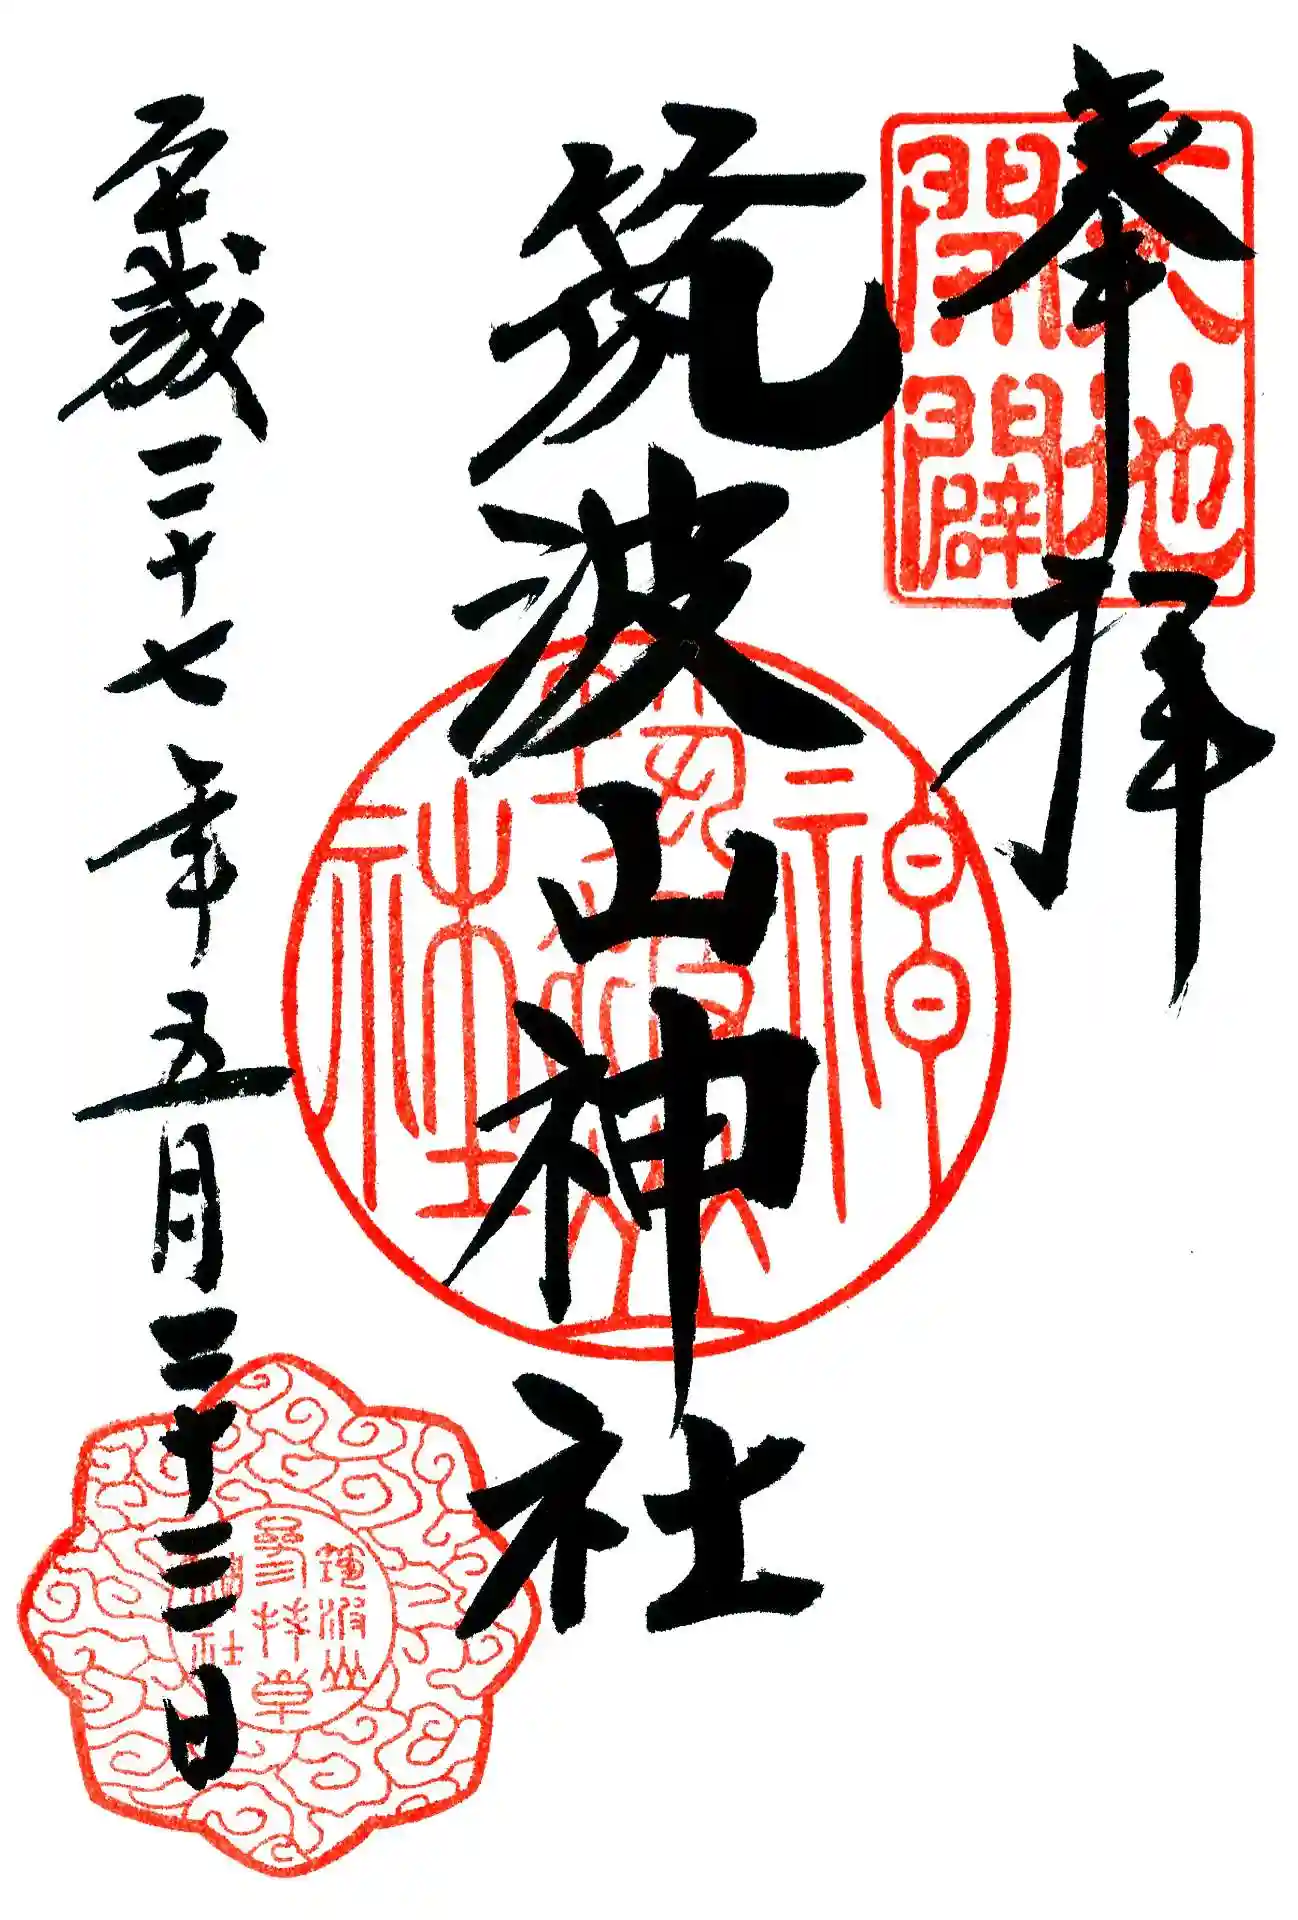 奉拝
天地
開闢
筑波山神社
神
筑波山
社
平成二十七年五月二十三日
筑波山
参拝章
神社